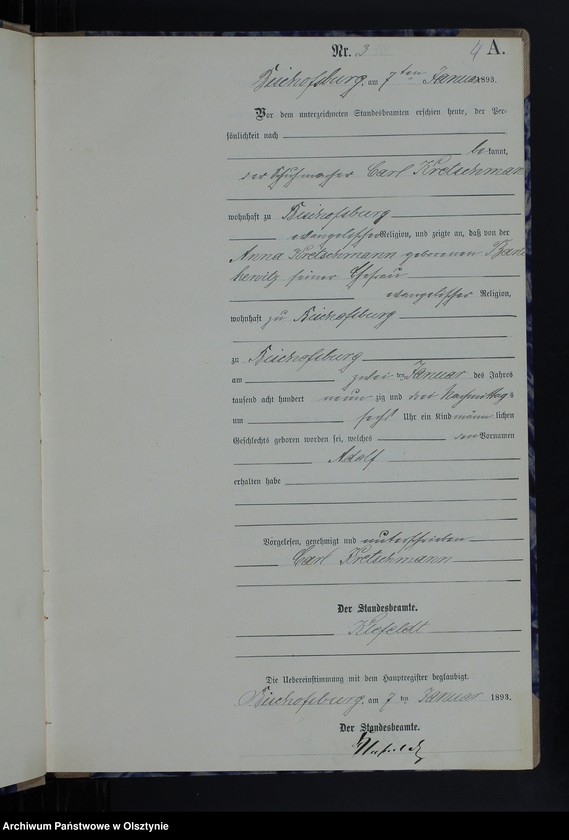 Nr. 3 4 A.
Bischofsburg am 7ten Januar 1893.
Vor dem unterzeichneten Standesbeamten erschien heute, der Per-
sönlichkeit nach
bekannt,
der Schuhmacher Carl Kretschmann
wohnhaft zu Bischofsburg
evangelischer Religion, und zeigte an, daß von der
Anna Kretschmann geborenen
seiner Ehefrau
evangelischer Religion,
wohnhaft zu Bischofsburg
zu Bischofsburg
am zwei ten Januar des Jahres
tausend acht hundert neunzig und drei Nachmittags
um sechs Uhr ein Kind männlichen
Geschlechts geboren worden sei, welches den Vornamen
Adolf
erhalten habe
Vorgelesen, genehmigt und unterschrieben
Carl Kretschmann
Der Standesbeamte.
Klefeldt
Die Uebereinstimmung mit dem Hauptregister beglaubigt.
Bischofsburg am 7 ten Januar 1893.
Der Standesbeamte.
Archiwum Państwowe w Olsztynie